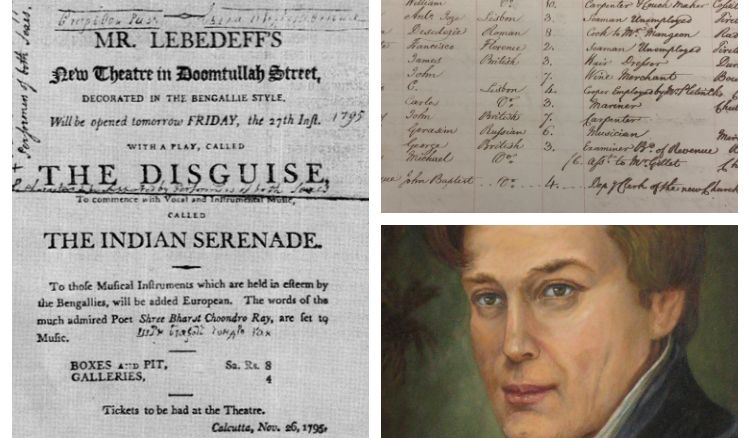 MR. LEBEDEFF'S
New Theatre in Doomtullah Street,
DECORATED IN THE BENGALLIE STYLE,
Will be opened tomorrow FRIDAY, the 27th Inst. 1795
WITH A PLAY, CALLED
THE DISGUISE,
To commence with Vocal and Instrumental Music,
CALLED
THE INDIAN SERENADE.
To those Musical Instruments which are held in esteem by
the Bengallies, will be added European. The words of the
much admired Poet Shree Bharot Choondro Ray, are set to
Music.
BOXES AND PIT, Sa. Rs. 8
GALLERIES, 4
Tickets to be had at the Theatre.
Calcutta, Nov. 26, 1795.
Performers of both Sexes.
William Do. 10. Carpenter & Coach Maker
Lisbon 3. Seaman Unemployed
Roman 8 Cook to Mr.
Francisco Florence 2. Seaman Unemployed
James British 3. Hair Dresser
John 7. Wine Merchant
C. Lisbon 4. Employed by Mr.
Carlo Do. 3. Mariner
John British 7. Carpenter
Gerasim Russian 6. Musician
George British 3. Examiner Bd. of Revenue
Michael Do. 16. Asst. to Mr. Gillet
John Baptist Do. 4. Clerk of the new Church